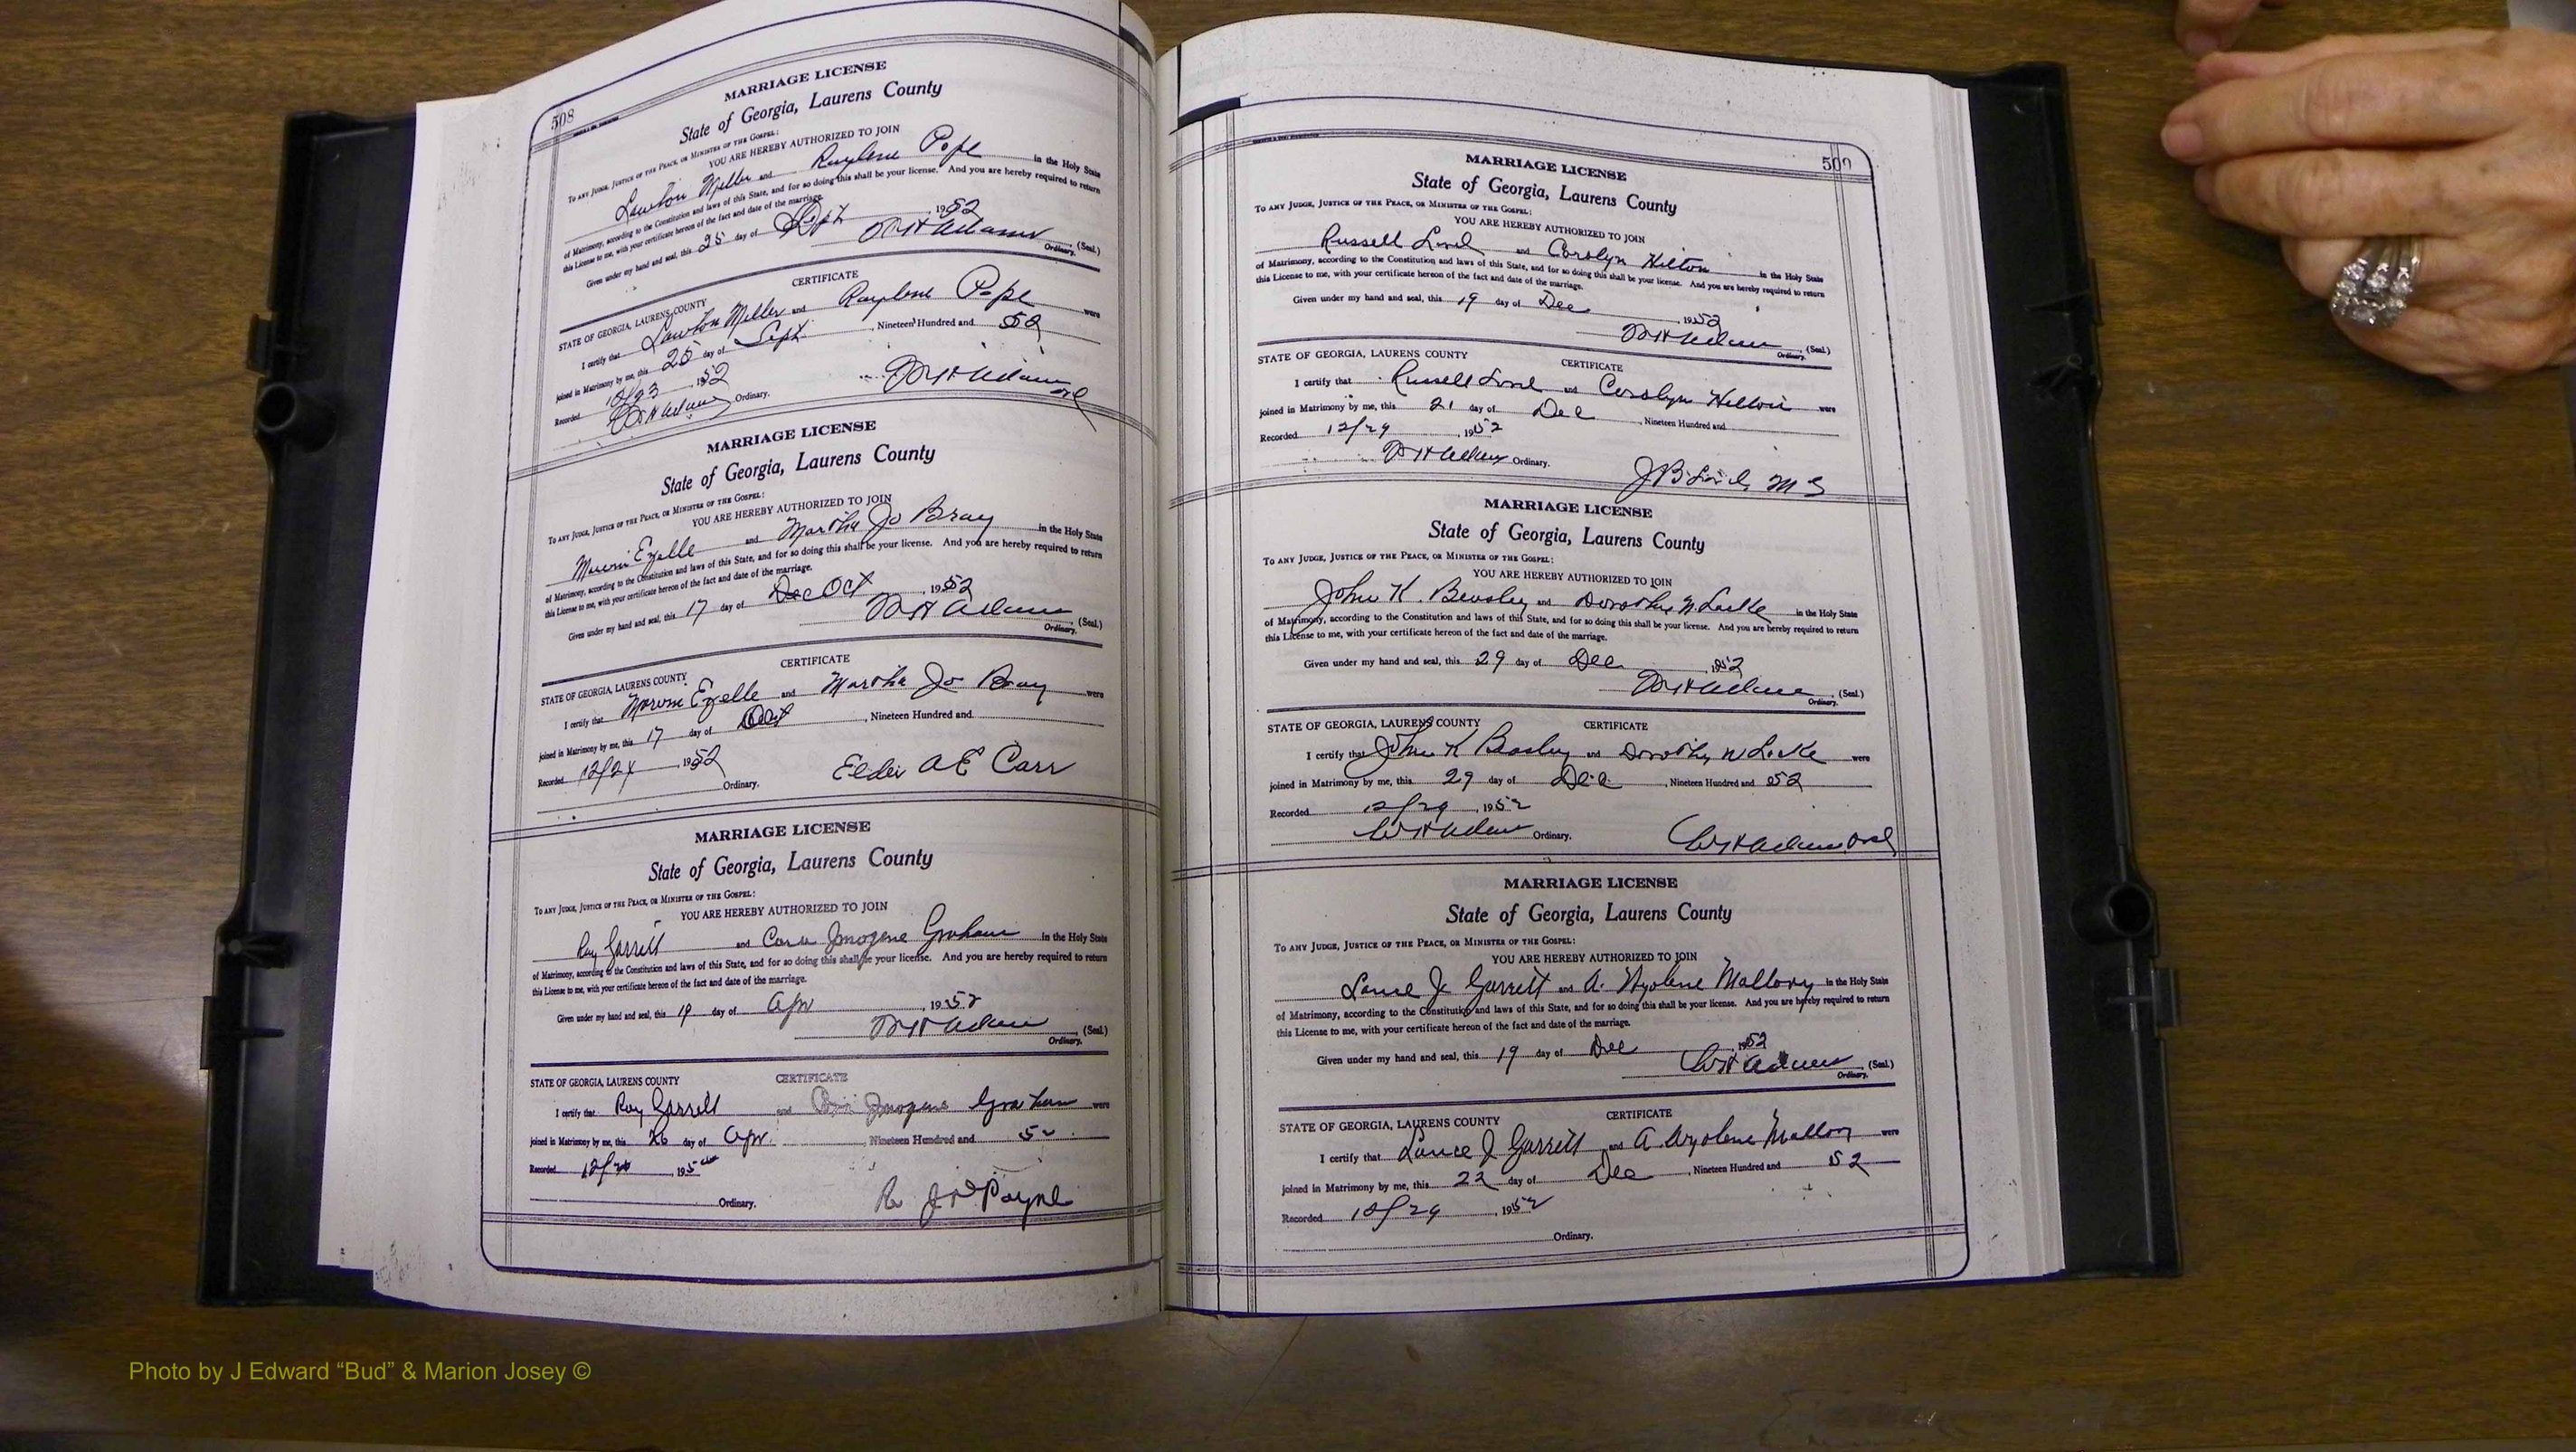 508
MARRIAGE LICENSE
State of Georgia, Laurens County
TO ANY JUDGE, JUSTICE OF THE PEACE, OR MINISTER OF THE GOSPEL:
YOU ARE HEREBY AUTHORIZED TO JOIN
Lawton Miller and Raylene Pope in the Holy State
of Matrimony, according to the Constitution and laws of this State, and for so doing this shall be your license. And you are hereby required to return
this License to me, with your certificate hereon of the fact and date of the marriage.
Given under my hand and seal, this 25 day of Sept, 1952
W H Adams (Seal.)
Ordinary.
CERTIFICATE
STATE OF GEORGIA, LAURENS COUNTY
I certify that Lawton Miller and Raylene Pope were
joined in Matrimony by me, this 25 day of Sept, Nineteen Hundred and 52
Recorded 1952
W H Adams Ordinary. W H Adams Ord
MARRIAGE LICENSE
State of Georgia, Laurens County
TO ANY JUDGE, JUSTICE OF THE PEACE, OR MINISTER OF THE GOSPEL:
YOU ARE HEREBY AUTHORIZED TO JOIN
Ezelle and Martha Jo Bray in the Holy State
of Matrimony, according to the Constitution and laws of this State, and for so doing this shall be your license. And you are hereby required to return
this License to me, with your certificate hereon of the fact and date of the marriage.
Given under my hand and seal, this 17 day of Dec Oct, 1952
W H Adams (Seal.)
Ordinary.
CERTIFICATE
STATE OF GEORGIA, LAURENS COUNTY
I certify that Ezelle and Martha Jo Bray were
joined in Matrimony by me, this 17 day of Oct, Nineteen Hundred and
Recorded 12/24, 1952
Ordinary. Elder A E Carr
MARRIAGE LICENSE
State of Georgia, Laurens County
TO ANY JUDGE, JUSTICE OF THE PEACE, OR MINISTER OF THE GOSPEL:
YOU ARE HEREBY AUTHORIZED TO JOIN
Roy Garrett and Cora Imogene Graham in the Holy State
of Matrimony, according to the Constitution and laws of this State, and for so doing this shall be your license. And you are hereby required to return
this License to me, with your certificate hereon of the fact and date of the marriage.
Given under my hand and seal, this 19 day of Apr, 1952
W H Adams (Seal.)
Ordinary.
STATE OF GEORGIA, LAURENS COUNTY CERTIFICATE
I certify that Roy Garrett and Imogene Graham were
joined in Matrimony by me, this 26 day of Apr, Nineteen Hundred and 52
Recorded 195
Ordinary. Payne
509
MARRIAGE LICENSE
State of Georgia, Laurens County
TO ANY JUDGE, JUSTICE OF THE PEACE, OR MINISTER OF THE GOSPEL:
YOU ARE HEREBY AUTHORIZED TO JOIN
Russell Lord and Carolyn Hilton in the Holy State
of Matrimony, according to the Constitution and laws of this State, and for so doing this shall be your license. And you are hereby required to return
this License to me, with your certificate hereon of the fact and date of the marriage.
Given under my hand and seal, this 19 day of Dec, 1952
W H Adams (Seal.)
Ordinary.
STATE OF GEORGIA, LAURENS COUNTY CERTIFICATE
I certify that Russell Lord and Carolyn Hilton were
joined in Matrimony by me, this 21 day of Dec, Nineteen Hundred and
Recorded 12/29, 1952
W H Adams Ordinary.
J B
MARRIAGE LICENSE
State of Georgia, Laurens County
TO ANY JUDGE, JUSTICE OF THE PEACE, OR MINISTER OF THE GOSPEL:
YOU ARE HEREBY AUTHORIZED TO JOIN
John K. Beasley and Dorothy N. Locke in the Holy State
of Matrimony, according to the Constitution and laws of this State, and for so doing this shall be your license. And you are hereby required to return
this License to me, with your certificate hereon of the fact and date of the marriage.
Given under my hand and seal, this 29 day of Dec, 1952
W H Adams (Seal.)
Ordinary.
STATE OF GEORGIA, LAURENS COUNTY CERTIFICATE
I certify that John K Beasley and Dorothy N Locke were
joined in Matrimony by me, this 29 day of Dec, Nineteen Hundred and 52
Recorded 12/29, 1952
W H Adams Ordinary. W H Adams Ord
MARRIAGE LICENSE
State of Georgia, Laurens County
TO ANY JUDGE, JUSTICE OF THE PEACE, OR MINISTER OF THE GOSPEL:
YOU ARE HEREBY AUTHORIZED TO JOIN
Lance J. Garrett and A. Mallory in the Holy State
of Matrimony, according to the Constitution and laws of this State, and for so doing this shall be your license. And you are hereby required to return
this License to me, with your certificate hereon of the fact and date of the marriage.
Given under my hand and seal, this 19 day of Dec, 1952
W H Adams (Seal.)
Ordinary.
STATE OF GEORGIA, LAURENS COUNTY CERTIFICATE
I certify that Lance J Garrett and A were
joined in Matrimony by me, this 22 day of Dec, Nineteen Hundred and 52
Recorded 12/29, 1952
Ordinary.
Photo by J Edward “Bud” & Marion Josey ©